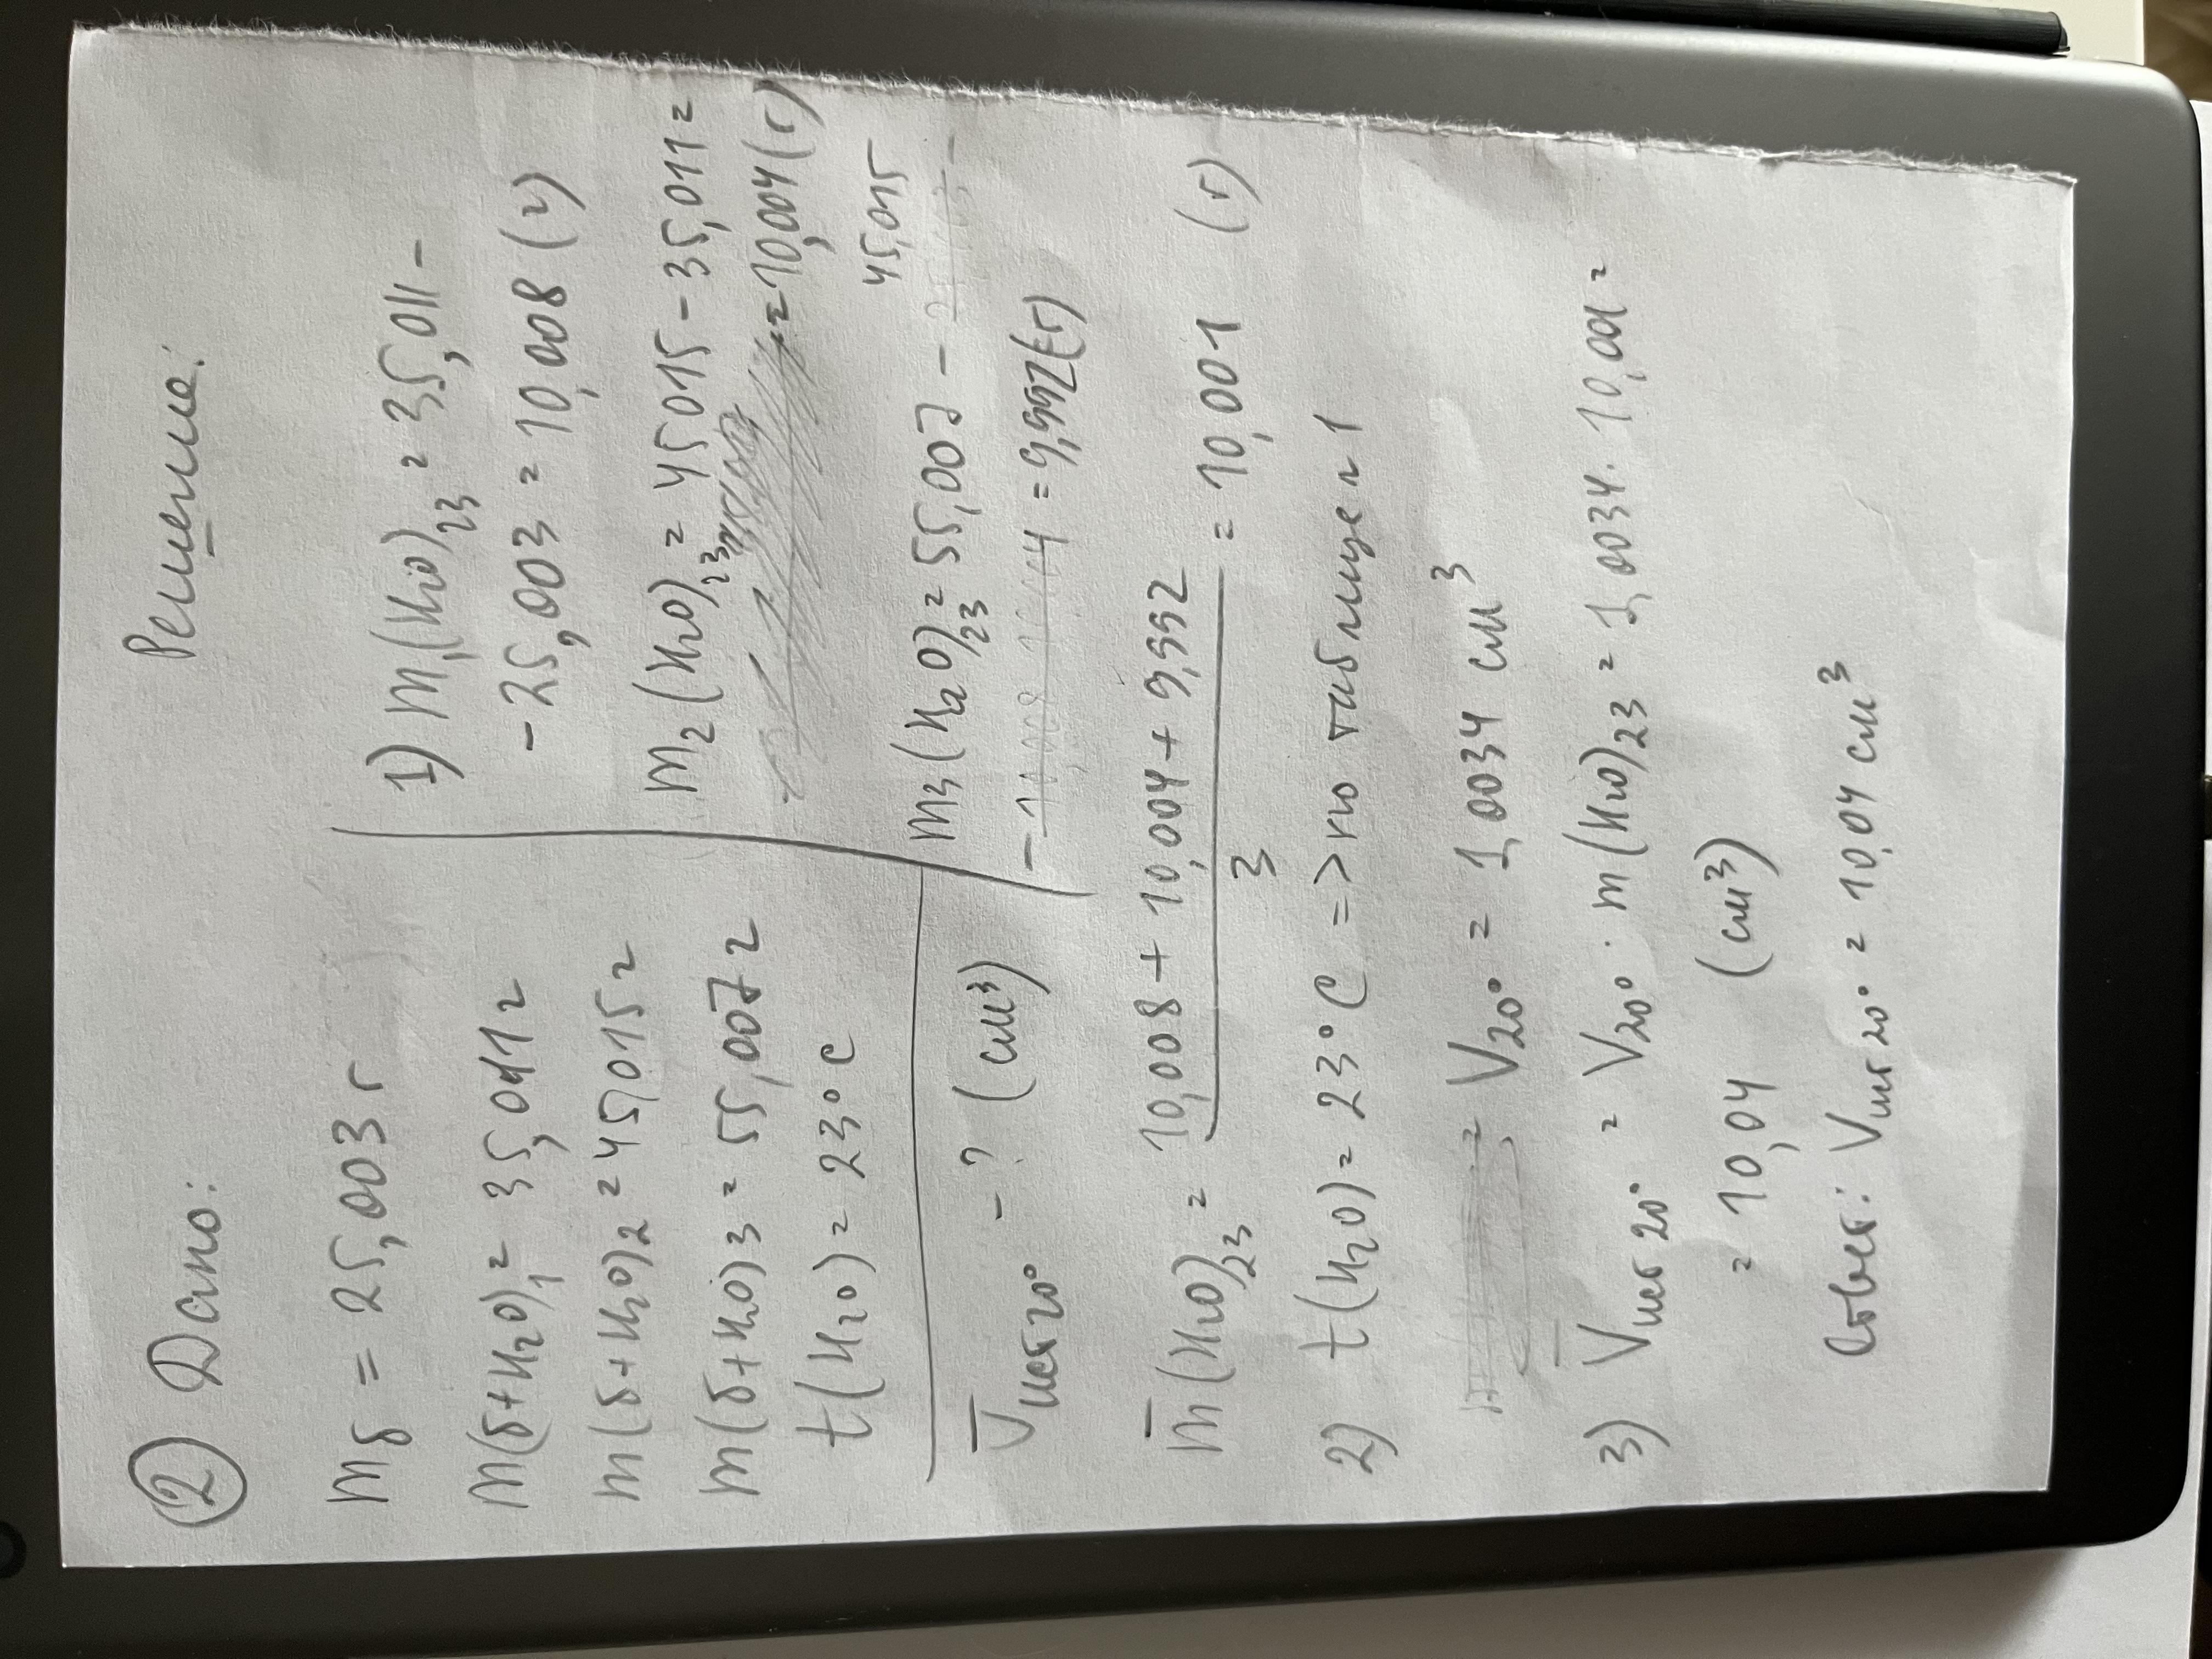 ② Дано:
m б = 25,003 г
m(б+H₂O)₁ = 35,011 г
m(б+H₂O)₂ = 45,015 г
m(б+H₂O)₃ = 55,007 г
t(H₂O) = 23°C
V̅ пет 20° - ? (см³)
Решение:
1) m₁(H₂O)₂₃ = 35,011 -
- 25,003 = 10,008 (г)
m₂(H₂O)₂₃ = 45015 - 35,011 =
= 10,004 (г)
45,015
m₃(H₂O)₂₃ = 55,007 -
- = 9,992 (г)
m̅(H₂O)₂₃ = (10,008 + 10,004 + 9,992) / 3 = 10,001 (г)
2) t(H₂O) = 23°C => по таблице 1
V₂₀° = 1,0034 см³
3) V̅ пет 20° = V₂₀° · m(H₂O)₂₃ = 1,0034 · 10,001 =
= 10,04 (см³)
Ответ: V пет 20° = 10,04 см³